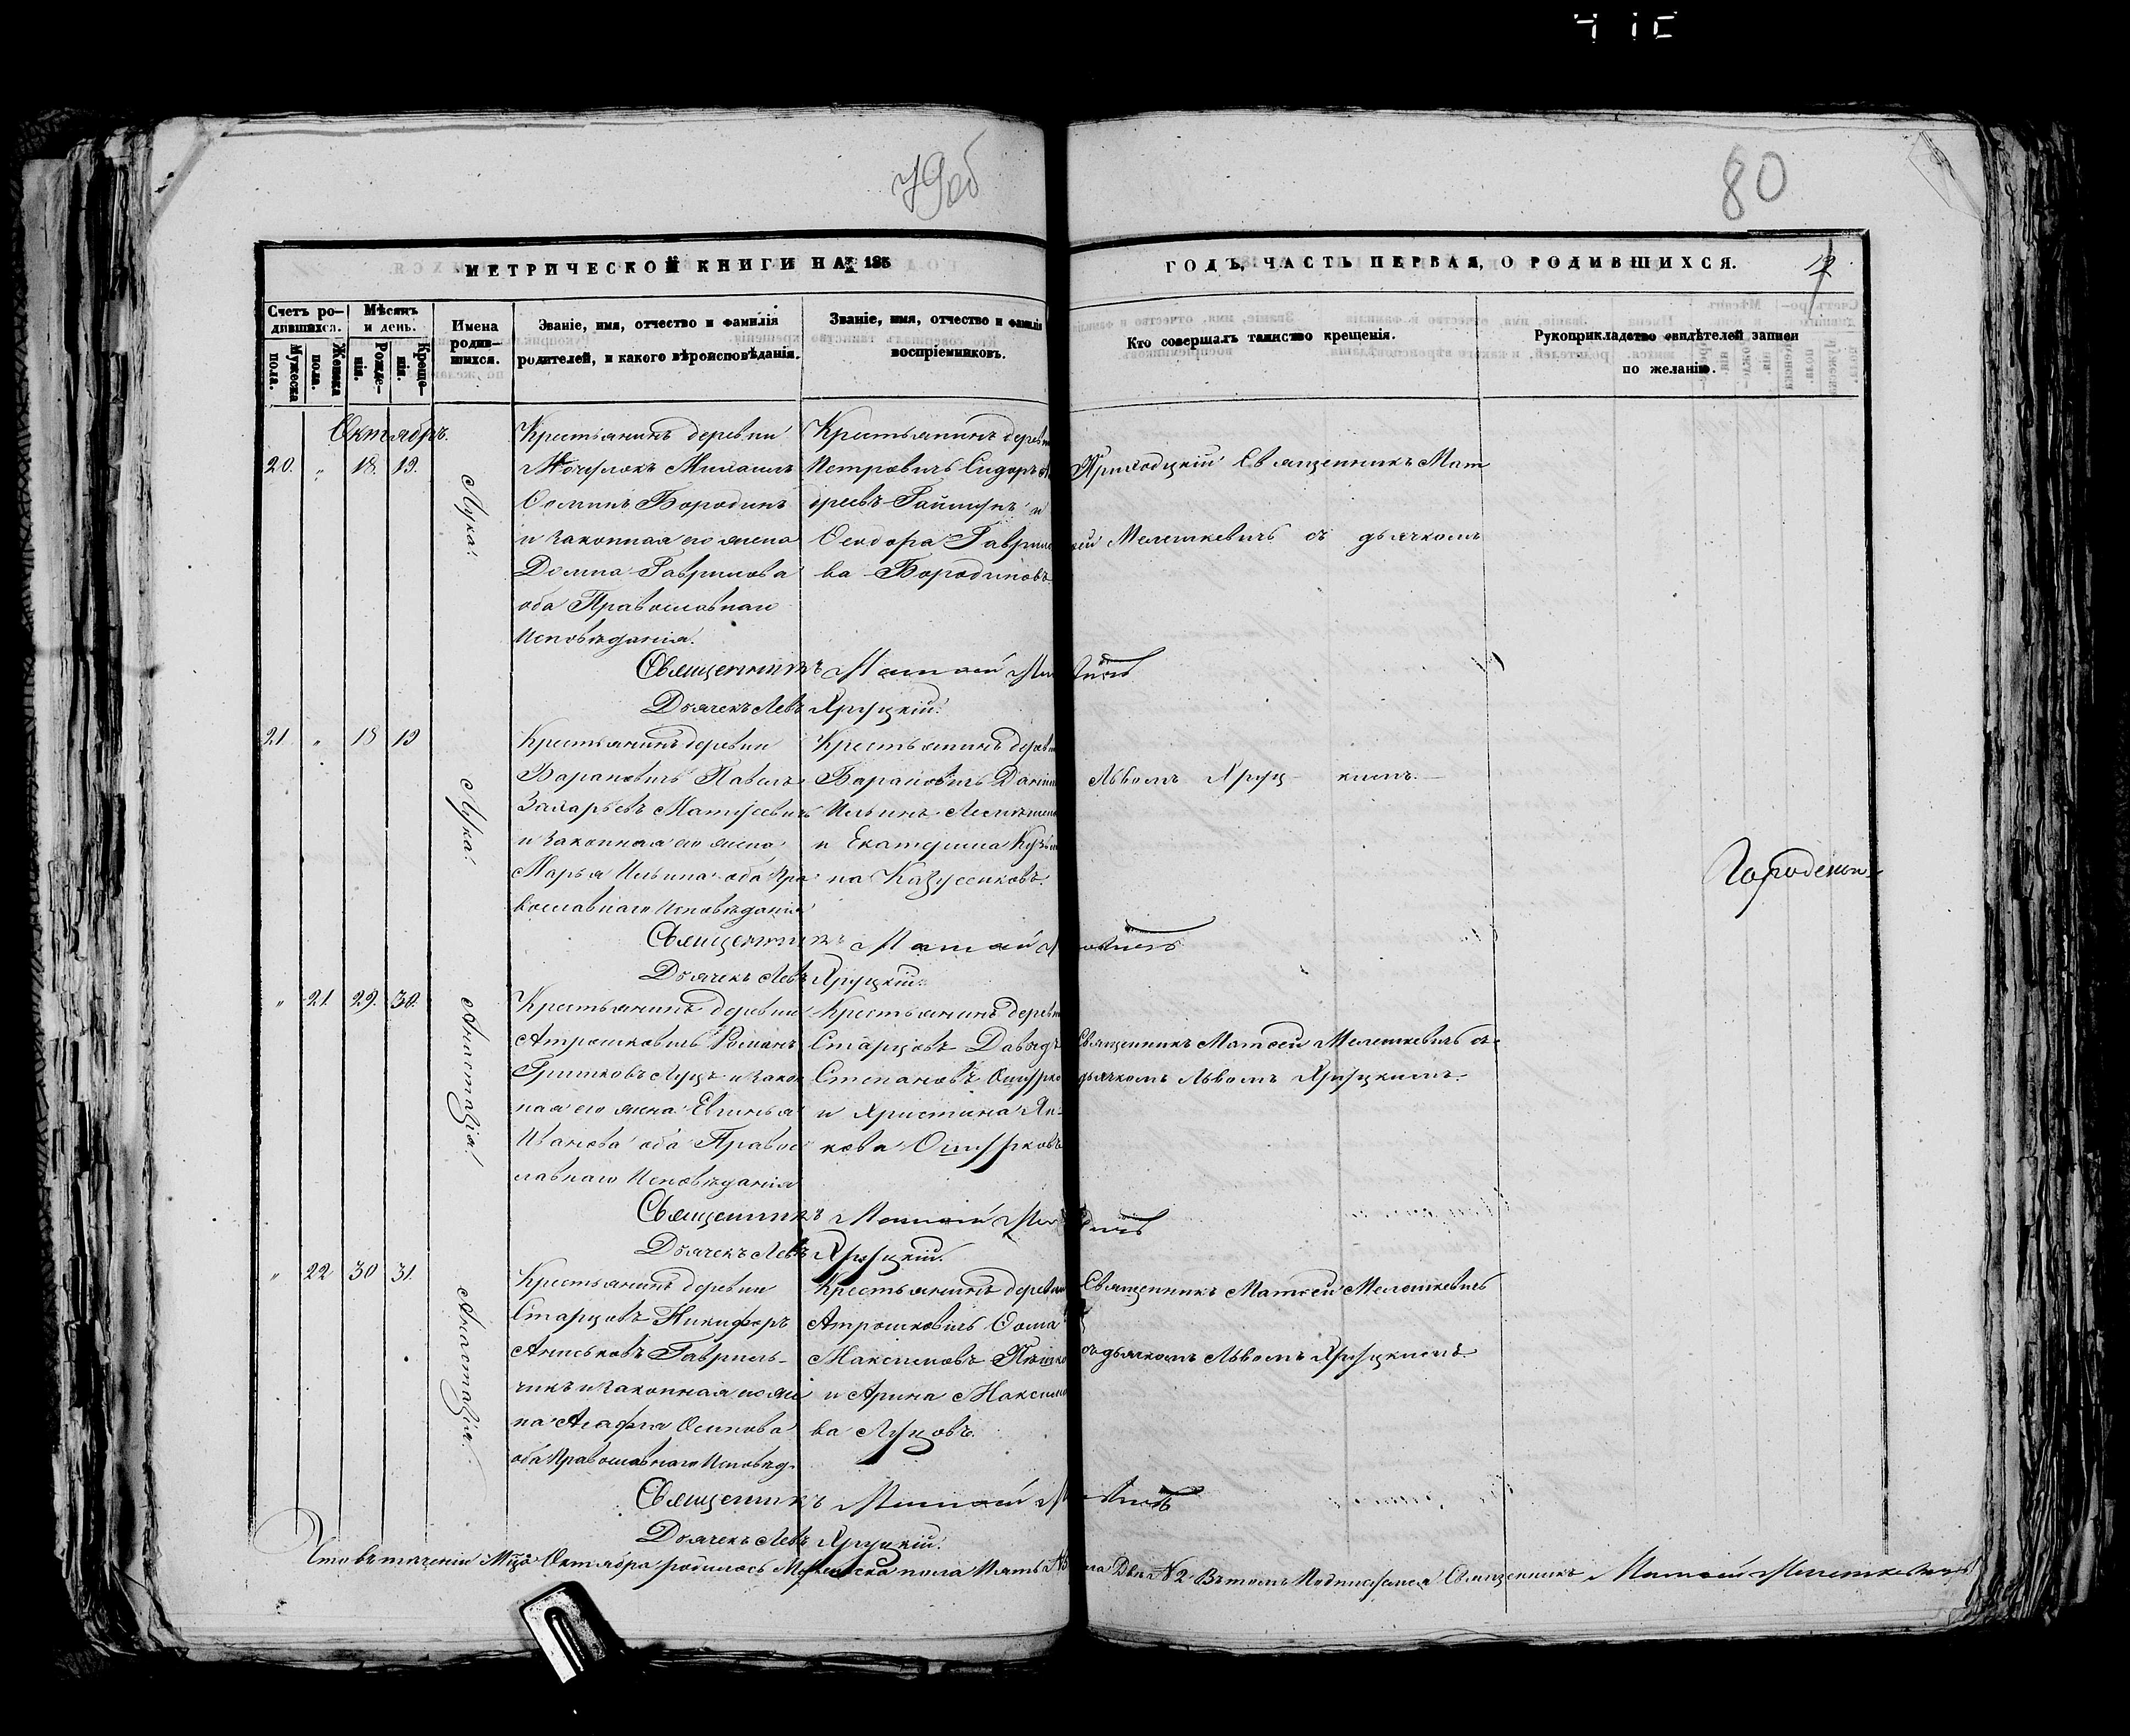 79об
80
МЕТРИЧЕСКОЙ КНИГИ НА 185
ГОДЪ, ЧАСТЬ ПЕРВАЯ, О РОДИВШИХСЯ.
Счетъ ро-
дившихся.
Мужеска
пола.
Женска
пола.
Мѣсяцъ
и день.
Рожде-
нія.
Креще-
нія.
Имена
родив-
шихся.
Званіе, имя, отчество и фамилія
родителей, и какого вѣроисповѣданія.
Званіе, имя, отчество и фамилія
воспріемниковъ.
Кто совершалъ таинство крещенія.
Рукоприкладство свидѣтелей записи
по желанію.
Октябрь.
20. " 18. 19.
Лука.
Крестьянинъ деревни
Михаилъ
Ѳоминъ Бородинъ
и законная его жена
Домна Гаврилова
оба Православнаго
Исповѣданія.
Крестьянинъ деревни
Петровичь Сидоръ Ан
дреевъ и
Ѳеодора Гаврило
ва Бородиновъ
Приходскій Священникъ Мат
ѳей Мелешкевичь съ дьячкомъ
Священникъ Матѳей
Дьячекъ Левъ Хруцкій.
21 " 18 19
Лука.
Крестьянинъ деревни
Барановичь Павелъ
Захарьевъ Матусевичь
и законная его жена
Марья Ильина оба Пра
вославнаго Исповѣданія
Крестьянинъ деревни
Барановичь Даніилъ
Ильинъ
и Екатерина Кузьми
на
Львомъ Хруцкимъ.
Священникъ Матѳей
Дьячекъ Левъ Хруцкій.
" 21 29. 30.
Анастазія.
Крестьянинъ деревни
Атрошковичь Романъ
Гришковъ Луцъ и закон
ная его жена Евгинья
Иванова оба Правос
лавнаго Исповѣданія
Крестьянинъ деревни
Старцовъ Давыдъ
Степановъ Ошурко
и Христина Ян-
кова Ошурковъ
Священникъ Матѳей Мелешкевичь съ
дьячкомъ Львомъ Хруцкимъ.
Священникъ Матѳей
Дьячекъ Левъ Хруцкій.
" 22 30 31.
Анастазія.
Крестьянинъ деревни
Старцовъ Никифоръ
Аниськовъ Гавриль-
чикъ и законная его же
на Агафія Осипова
оба Православнаго Исповѣд.
Крестьянинъ деревни
Атрошковичь Ѳома
Максимовъ
и Арина Максимо
ва Луцовъ.
Священникъ Матѳей Мелешкевичь
съ дьячкомъ Львомъ Хруцкимъ.
Священникъ Матѳей
Дьячекъ Левъ Хруцкій.
Что въ теченіи Мца Октября родилось Мужеска пола Пять № 5 Два № 2 Въ томъ Подписался Священникъ Матѳей Мелешкевичь